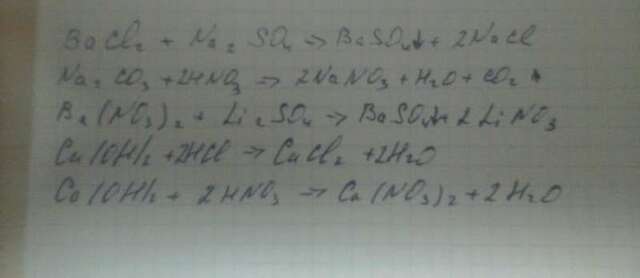 BaCl₂ + Na₂SO₄ → BaSO₄↓ + 2NaCl
Na₂CO₃ + 2HNO₃ → 2NaNO₃ + H₂O + CO₂↑
Ba(NO₃)₂ + Li₂SO₄ → BaSO₄↓ + 2LiNO₃
Cu(OH)₂ + 2HCl → CuCl₂ + 2H₂O
Ca(OH)₂ + 2HNO₃ → Ca(NO₃)₂ + 2H₂O